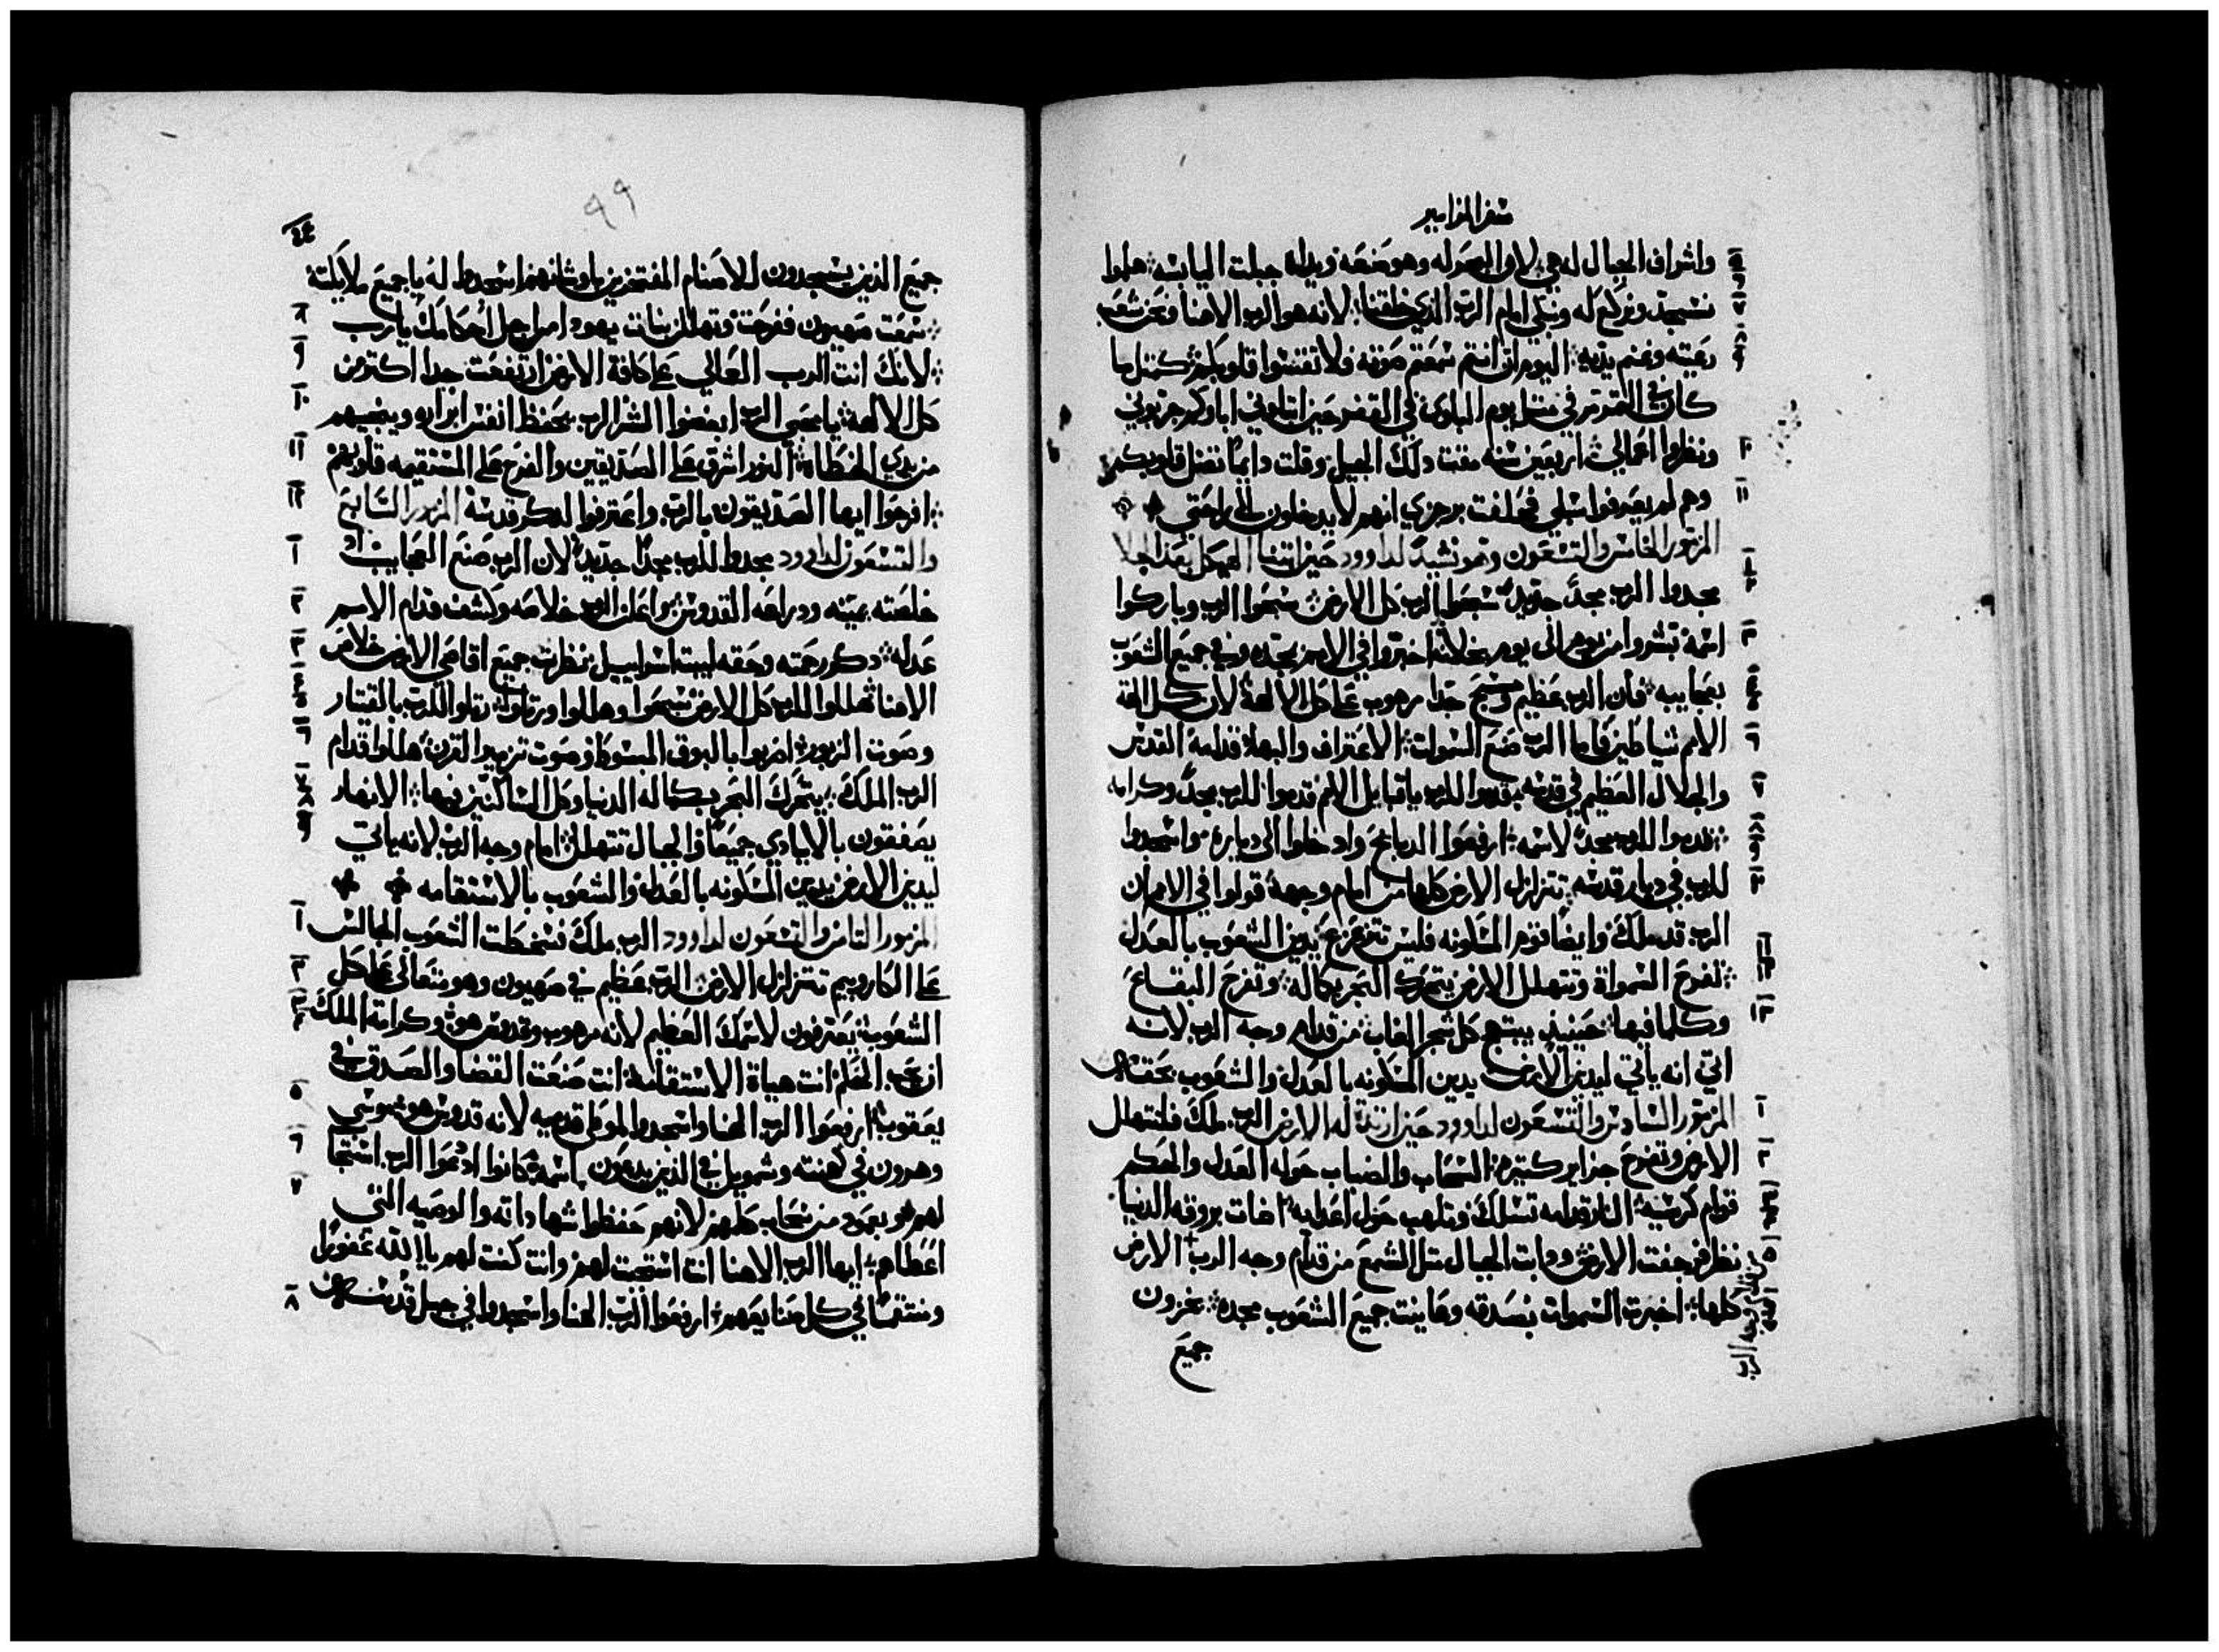 سفر المزامير
واشراف الجبال له هي لان البحر له وهو صنعه ويداه جبلت اليابسه هلموا
نسجد ونركع له ونبكي امام الرب الذي خلقنا لانه هو الرب الاهنا ونحن شعب
رعيته وغنم يديه اليوم ان انتم سمعتم صوته فلا تقسوا قلوبكم كمثل ما
كان في التمرمر في مثل يوم البلوى في القفر حين ابتلوني اباوكم جربوني
ونظروا اعمالي اربعين سنه مقتت ذلك الجيل وقلت دايما تضل قلوبكم
وهم لم يعرفوا سبلي فحلفت برجزي انهم لا يدخلون الى راحتي
المزمور الخامس والتسعون وهو نشيد لداوود حين ابتنا الهيكل بعد الجلا
مجدوا الرب مجدا جديدا سبحوا الرب كل الارض سبحوا الرب وباركوا
اسمه تبشروا من يوم الى يوم بخلاصه اخبروا في الامم بمجده وفي جميع الشعوب
بعجايبه فان الرب عظيم ومسبح جدا مرهوب على كل الالهة لان كل الهة
الامم شياطين فاما الرب صنع السموات الاعتراف والبها قدامه القدس
والجلال العظيم في قدسه قدموا للرب يا قبايل الامم قدموا للرب مجدا وكرامه
قدموا للرب مجدا لاسمه ارفعوا الدبايح وادخلوا الى ديارة واسجدوا
للرب في ديار قدسه تتزلزل الارض كلها من امام وجهه قولوا في الامم ان
الرب قد ملك وايضا قوم المسكونه فليس تتزعزع يدين الشعوب بالعدل
تفرح السمواة وتتهلل الارض يتحرك البحر بكماله وتفرح البقاع
وكلما فيها حينيذ يبتهج كل شجر الغاب من قدام وجه الرب لانه
اتي انه ياتي ليدين الارض يدين المسكونه بالعدل والشعوب بحقه
المزمور السادس والتسعون لداوود حين ارتدة له الارض الرب ملك فلتتهلل
الارض وتفرح جزاير كتيرة السحاب والضباب حوله العدل والحكم
قوام كرسيه النار قدامه تسلك وتلهب حول اعدايه اضات بروقه الدنيا
نظر فرجفت الارض ودابت الجبال متل الشمع من قدام وجه الرب الارض
كلها اخبرت السموات بعدله وعاينت جميع الشعوب مجده يخزون
جميع
٩٩
جميع الذين يسجدون للاصنام المفتخرين باوثانهم اسجدوا له يا جميع ملايكته
سمعت صهيون ففرحت وتهللن بنات يهودا من اجل احكامك يا رب
لانك انت الرب العالي على كافة الارض ارتفعت جدا اكتر من
كل الالهة يا محبي الرب ابغضوا الشر الرب يحفظ انفس ابراره وينجيهم
من يدي الخطاة النور اشرق على الصديقين والفرح على المستقيمه قلوبهم
افرحوا ايها الصديقون بالرب واعترفوا لدكر قدسه المزمور السابع
والتسعون لداوود مجدوا للرب مجدا جديدا لان الرب صنع العجايب
خلصته يمينه ودراعه القدوس اعلن الرب خلاصه وكشف قدام الامم
عدله دكر رحمته وحقه لبيت اسراييل نظرت جميع اقاصي الارض خلاص
الاهنا هللوا للرب كل الارض سبحوا وهللوا ورتلوا رتلوا للرب بالقيتار
وصوت الزبور اضربوا بالبوق المسوكه وصوت تزمير القرن هللوا قدام
الرب الملك يتحرك البحر بكماله الدنيا وكل الساكنين فيها الانهار
يصفقون بالايادي جميعا والجبال تتهلل امام وجه الرب لانه ياتي
ليدين الارض يدين المسكونه بالعدل والشعوب بالاستقامه
المزمور التامن والتسعون لداوود الرب ملك فسخطت الشعوب الجالس
على الكاروبيم تتزلزل الارض الرب عظيم في صهيون وهو متعالي على كل
الشعوب يعترفون لاسمك العظيم لانه مرهوب وقدوس هو وكرامة الملك
ان يحب الحكم انت هياة الاستقامة انت صنعت القضا والصدق في
يعقوب ارفعوا الرب الهنا واسجدوا لموطي قدميه لانه قدوس هو موسي
وهرون في كهنته وشمويل في الذين يدعون باسمه كانوا ادعوا الرب استجا
لهم هو بعمود من سحاب كلمهم لانهم حفظوا شهاداته والوصيه التي
اعطاهم ايها الرب الاهنا انت استجبت لهم وانت كنت لهم يا الله غفورا
ومنتقما في كل صنايعهم ارفعوا الرب الهنا واسجدوا في جبل قدسه